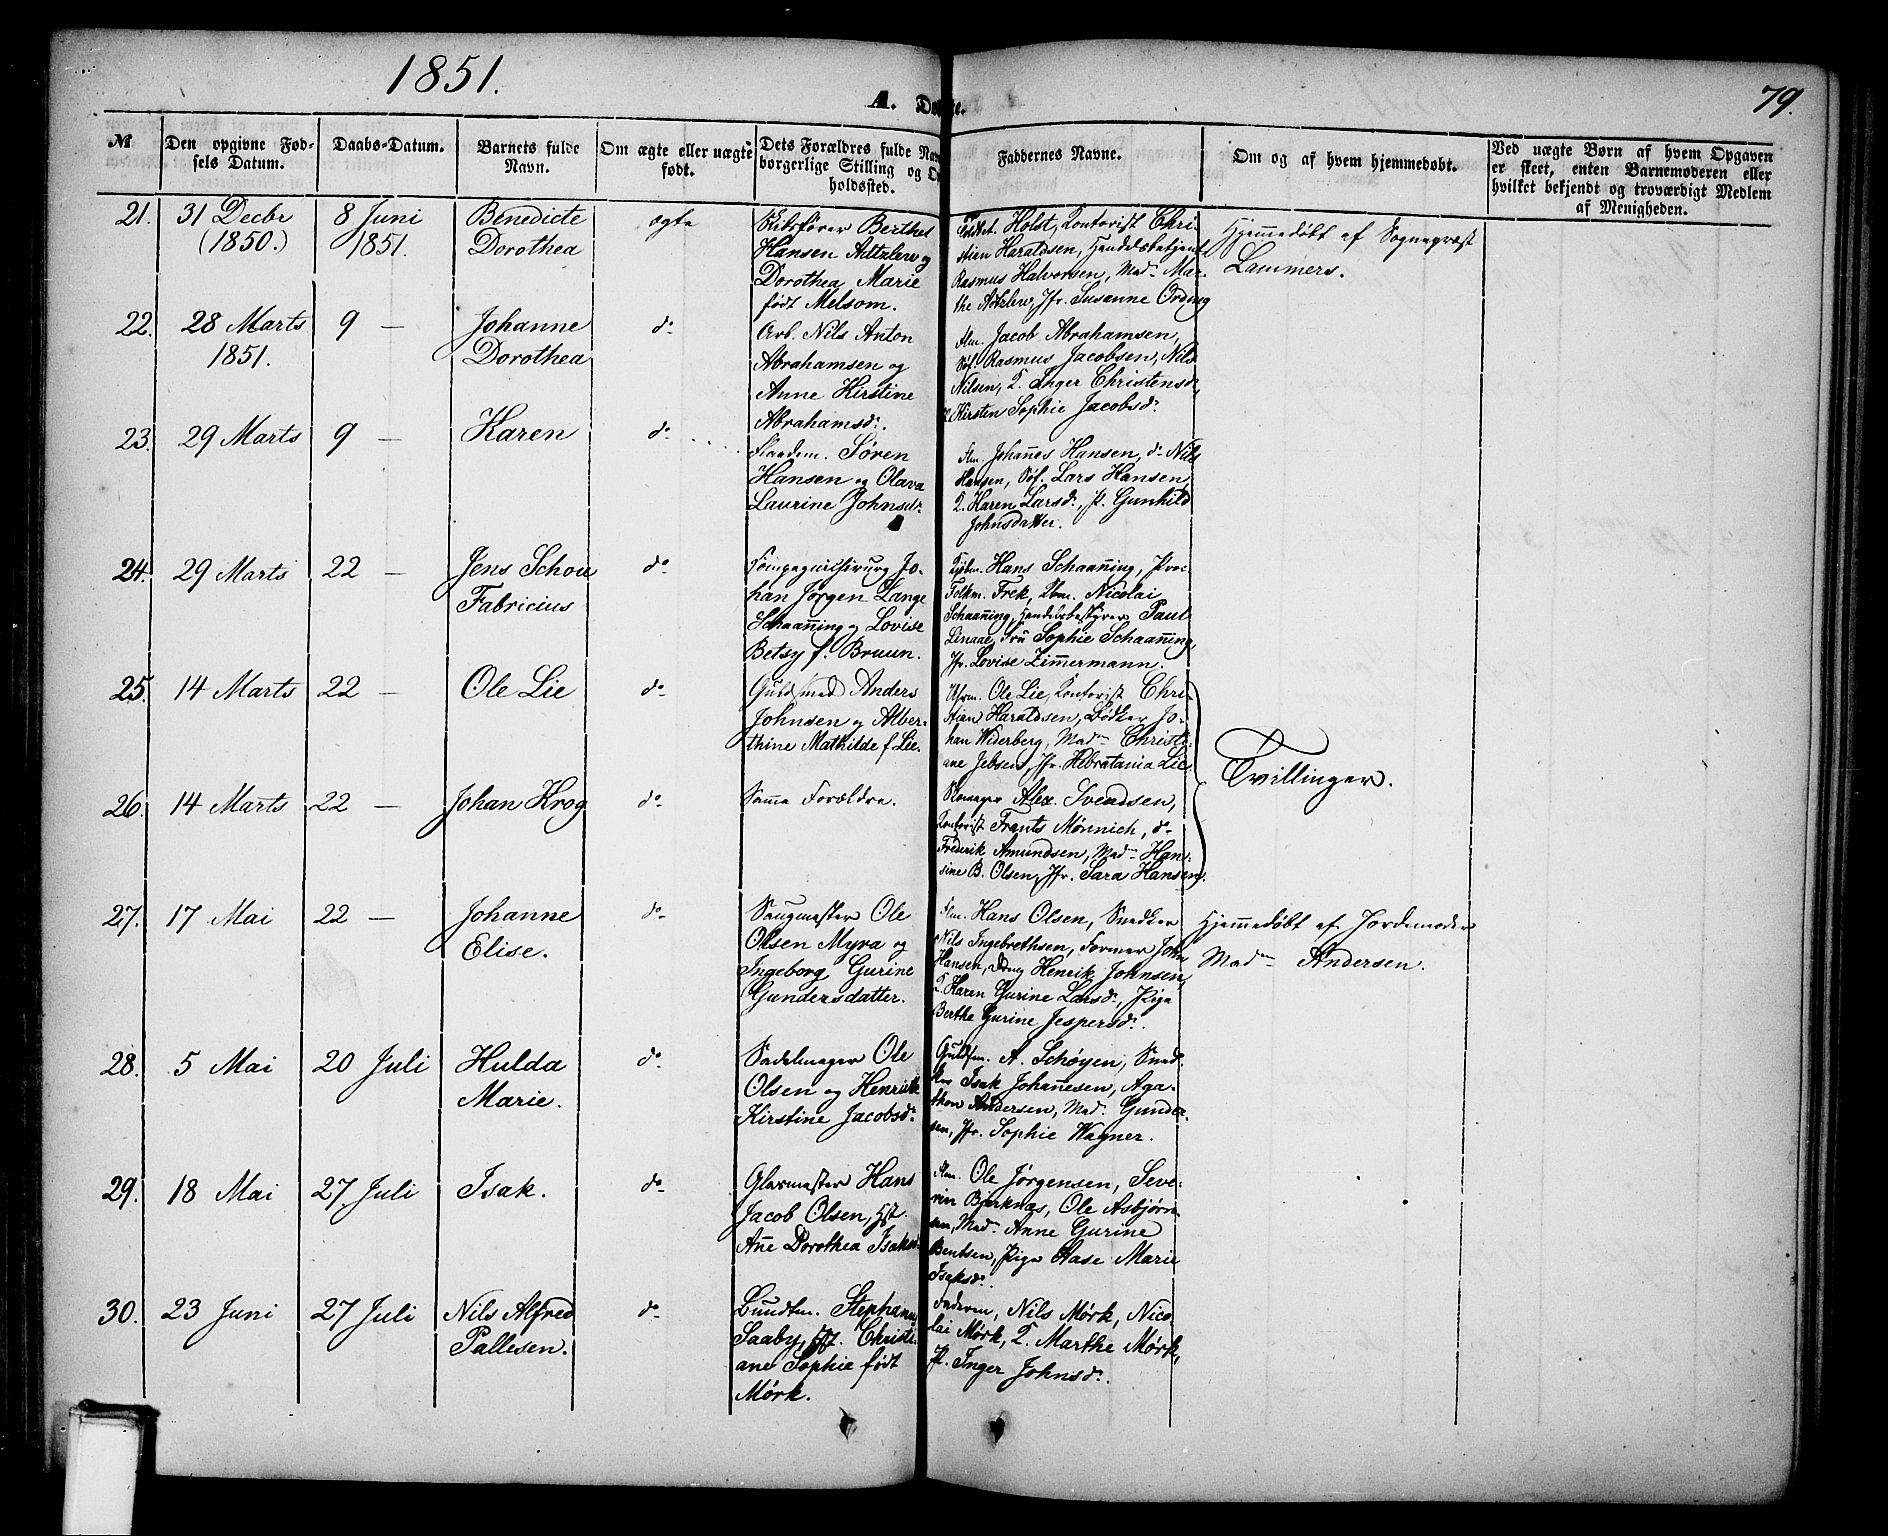 1851.
A.
79.
№
Den opgivne Fød-
sels Datum.
Daabs-Datum.
Barnets fulde
Navn.
Om ægte eller uægte
født.
Dets Forældres fulde Nav
borgerlige Stilling og O
holdssted.
Faddernes Navne.
Om og af hvem hjemmedøbt.
Ved uægte Børn af hvem Opgaven
er skeet, enten Barnemoderen eller
hvilket bekjendt og troværdigt Medlem
af Menigheden.
21.
31 Decbr
(1850.)
8 Juni
1851.
Benedicte
Dorothea
ægte
Skibsfører Berthel
Hansen Aitzlew og
Dorothea Marie
født Melsom.
Holst, Kontorist Chri-
stian Haraldsen, Handelsbetjent
Rasmus Halvorsen, Madm Mar-
the Aitzlew, Jfr. Susanne Ording
Hjemmedøbt af Sognepræst
Lammers.
22.
28 Marts
1851.
9 —
Johanne
Dorothea
do
Arb. Nils Anton
Abrahamsen og
Anne Kirstine
Abrahamsdr.
Jacob Abrahamsen,
Søf. Rasmus Jacobsen, Nils
Nilsen, K. Inger Christensdr,
Kirsten Sophie Jacobsdr.
23.
29 Marts
9 —
Karen
do
Søren
Hansen og Olava
Laurine Johnsdr
Johannes Hansen, do Nils
Hansen, Søf. Lars Hansen,
K. Karen Larsdr., P. Gunhild
Johnsdatter.
24.
29 Marts
22 —
Jens Schou
Fabricius
do
Compagnichirurg Jo-
han Jørgen Lange
Schaanning og Lovise
Betsy f. Bruun.
Kjøbm. Hans Schaanning, Pro-
Nicolai
Schaanning, Handelsbestyrer Paul
Linaae, Fru Sophie Schaanning,
Jfr. Lovise Zimmermann.
25.
14 Marts
22 —
Ole Lie
do
Guldsmed Anders
Johnsen og Alber-
thine Mathilde f. Lie.
Uhrm. Ole Lie, Kontorist Chri-
stian Haraldsen, Bødker Jo-
han Widerberg, Madm Christi-
ane Jebsen, Jfr. Hibratania Lie
Tvillinger.
26.
14 Marts
22 —
Johan Krog
do
Samme Forældre.
Skomager Alex. Svendsen,
Kontorist Frants Mønnich, do
Frederik Amundsen, Madm Han-
sine B. Olsen, Jfr. Sara Hansen.
27.
17 Mai
22 —
Johanne
Elise.
do
Saugmester Ole
Olsen Myra og
Ingeborg Gurine
Gundersdatter.
Hans Olsen, Snedker
Nils Ingebrethsen, Former John
Hansen, Henrik Johnsen,
K. Karen Gurine Larsdr., Pige
Berthe Gurine Jespersdr.
Hjemmedøbt af Jordemoder
Madm Andersen.
28.
5 Mai
20 Juli
Hulda
Marie.
do
Sadelmager Ole
Olsen og Henrikke
Kirstine Jacobsdr
Guldsm. A. Schøyen, Sned-
ker Isak Johannesen, Aga-
thon Andersen, Mad. Gunder-
sen, Jfr. Sophie Wagner.
29.
18 Mai
27 Juli
Isak.
do
Glarmester Hans
Jacob Olsen, Hst.
Anne Dorothea Isaksdr
Ole Jørgensen, Seve-
rin Bjerknæs, Ole Asbjørn-
sen, Madm Anne Gurine
Bentsen, Pige Aase Marie
Isaksdr.
30.
23 Juni
27 Juli
Nils Alfred
Pallesen.
do
Bundtm. Stephanus
Saaby, Hst. Christi-
ane Sophie født
Mørk.
Faderen, Nils Mørk, Nico-
lai Mørk, K. Marthe Mørk,
P. Inger Johnsdr.